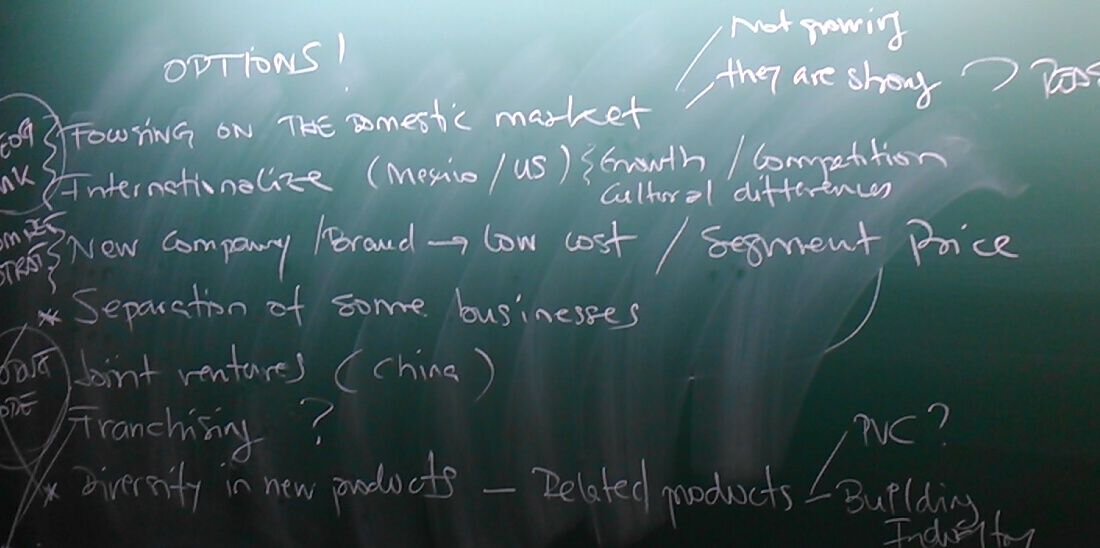 Not growing
OPTIONS!
they are strong
FOCUSING ON THE Domestic market
Internationalize (Mexico / US) { Growth / Competition
Cultural differences
New Company / Brand → Low cost / Segment Price
* Separation of some businesses
Joint ventures (China)
Franchising ?
PVC ?
* Diversify in new products — Related products — Building
Industry